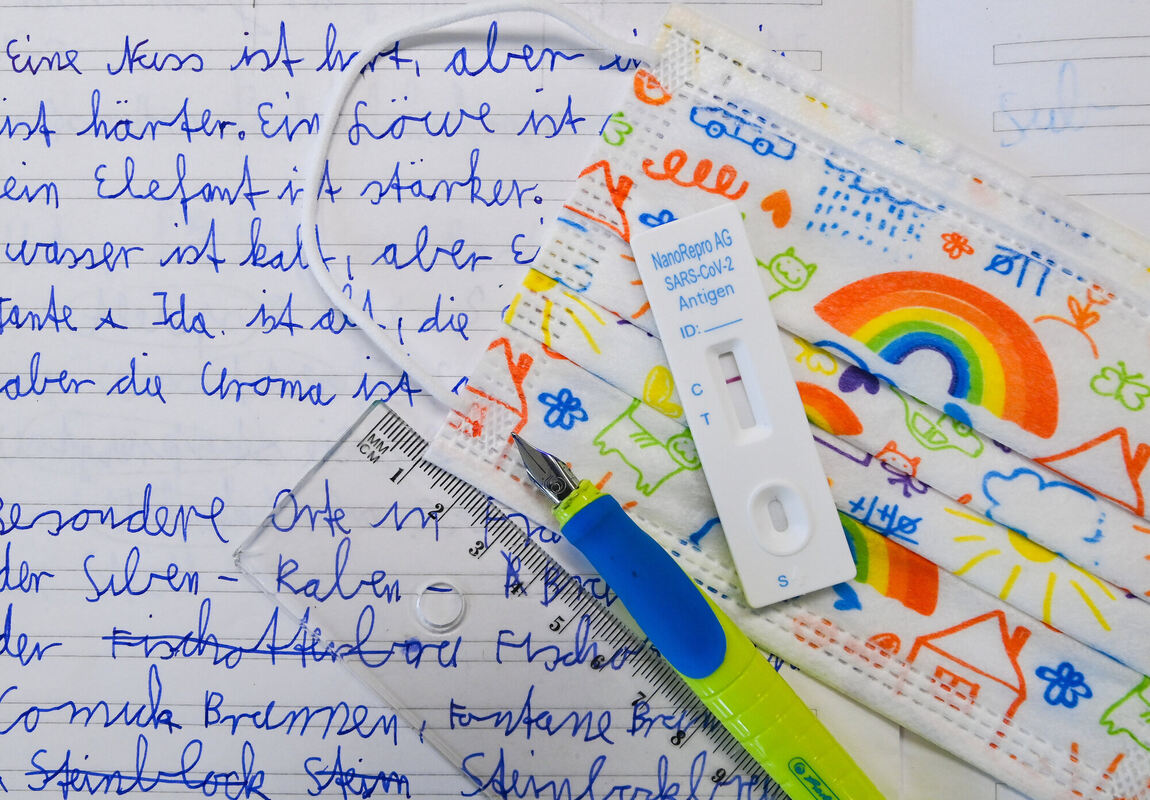 Eine Nuss ist hart, aber
ist härter. Ein Löwe ist
ein Elefant ist stärker.
wasser ist kalt, aber Ei
tante Ida. ist alt, die
aber die Uroma ist
Besondere Orte in
der Silben- Raben -
der Fischotter
Brannen, Fontane
Steinbock Steinm Steinbock
NanoRepro AG
SARS-CoV-2
Antigen
ID:
C
T
S
MM
CM
1
2
3
4
5
6
7
8
9